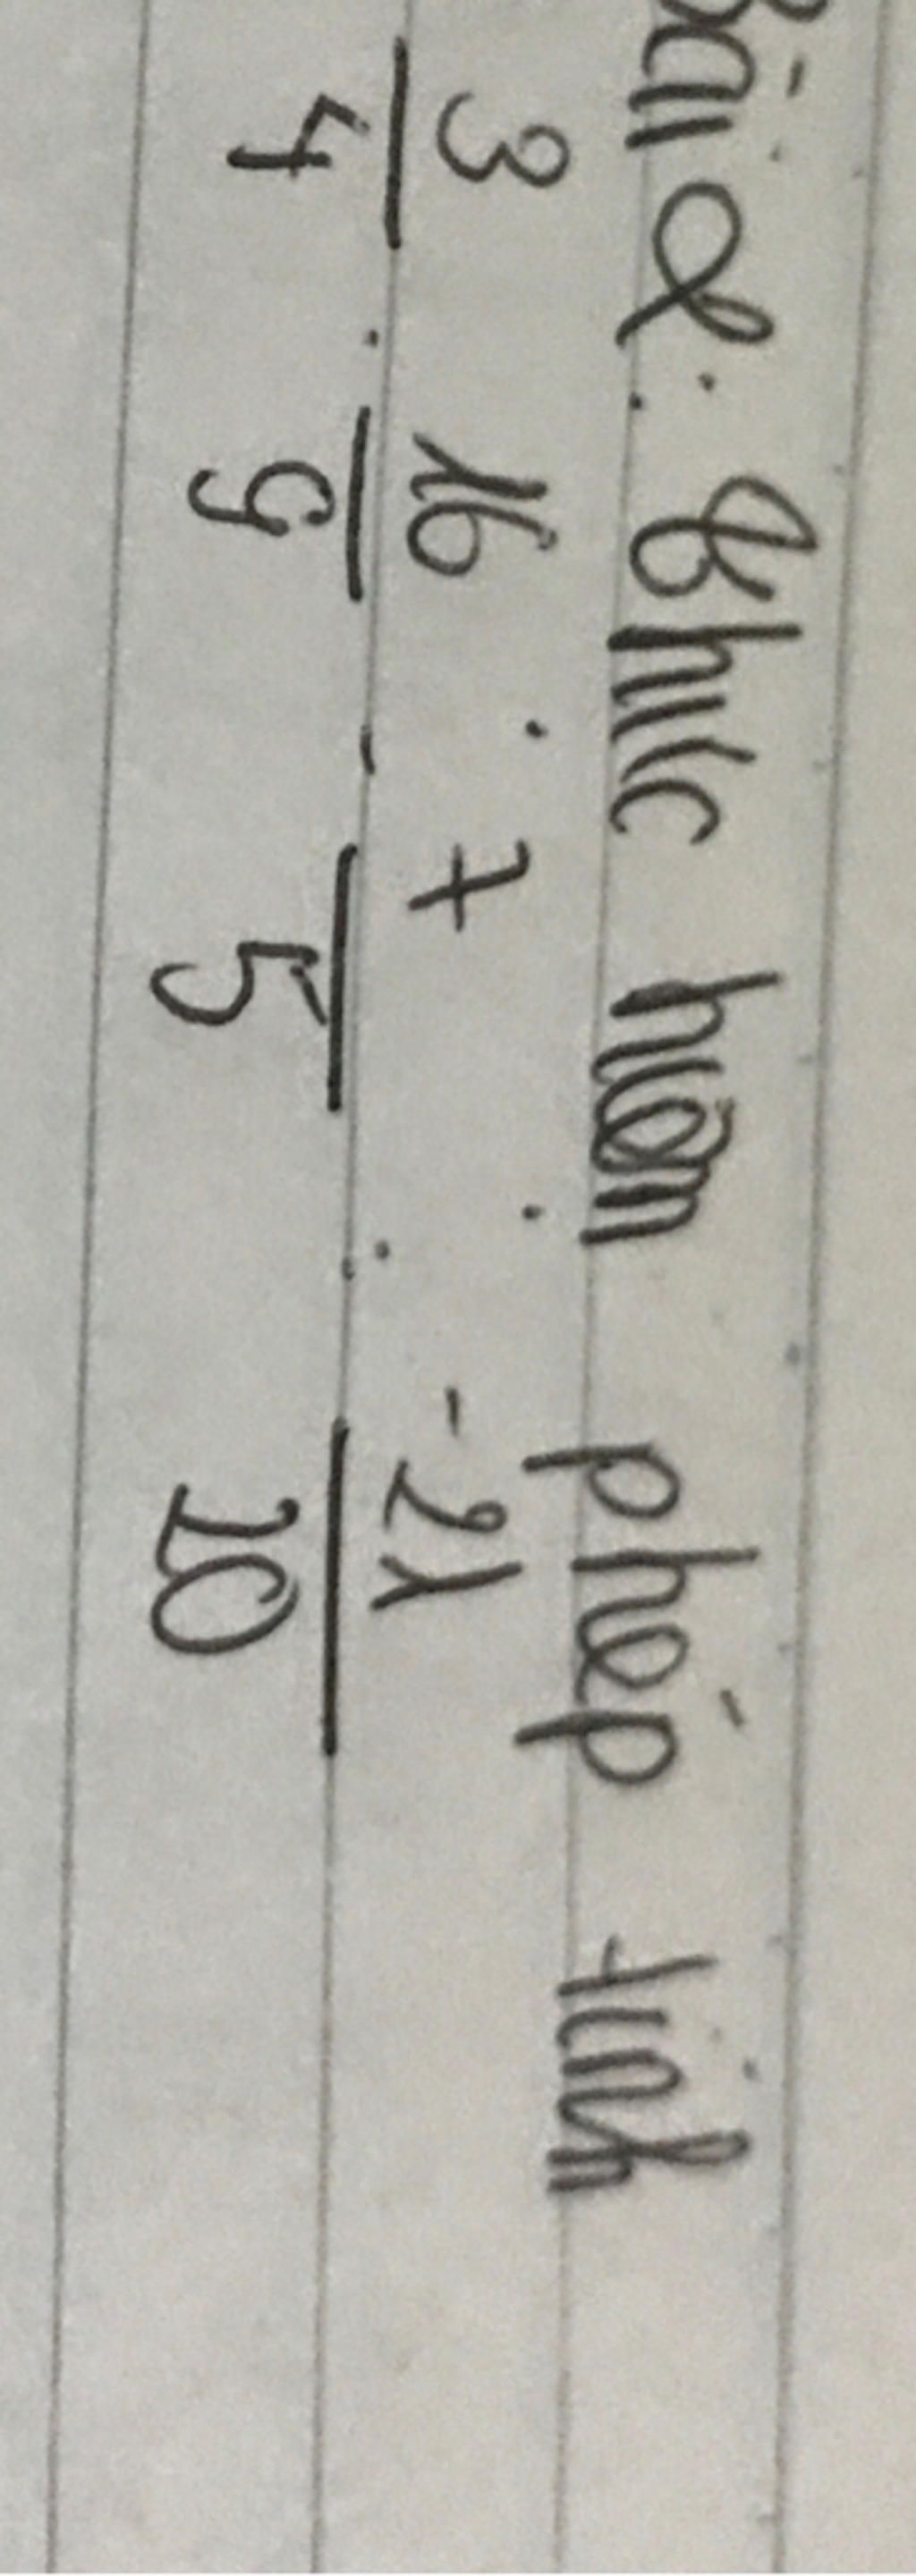 Bài 2: Thực hiện phép tính
3/4 . 16/9 - 7/5 : -21/20